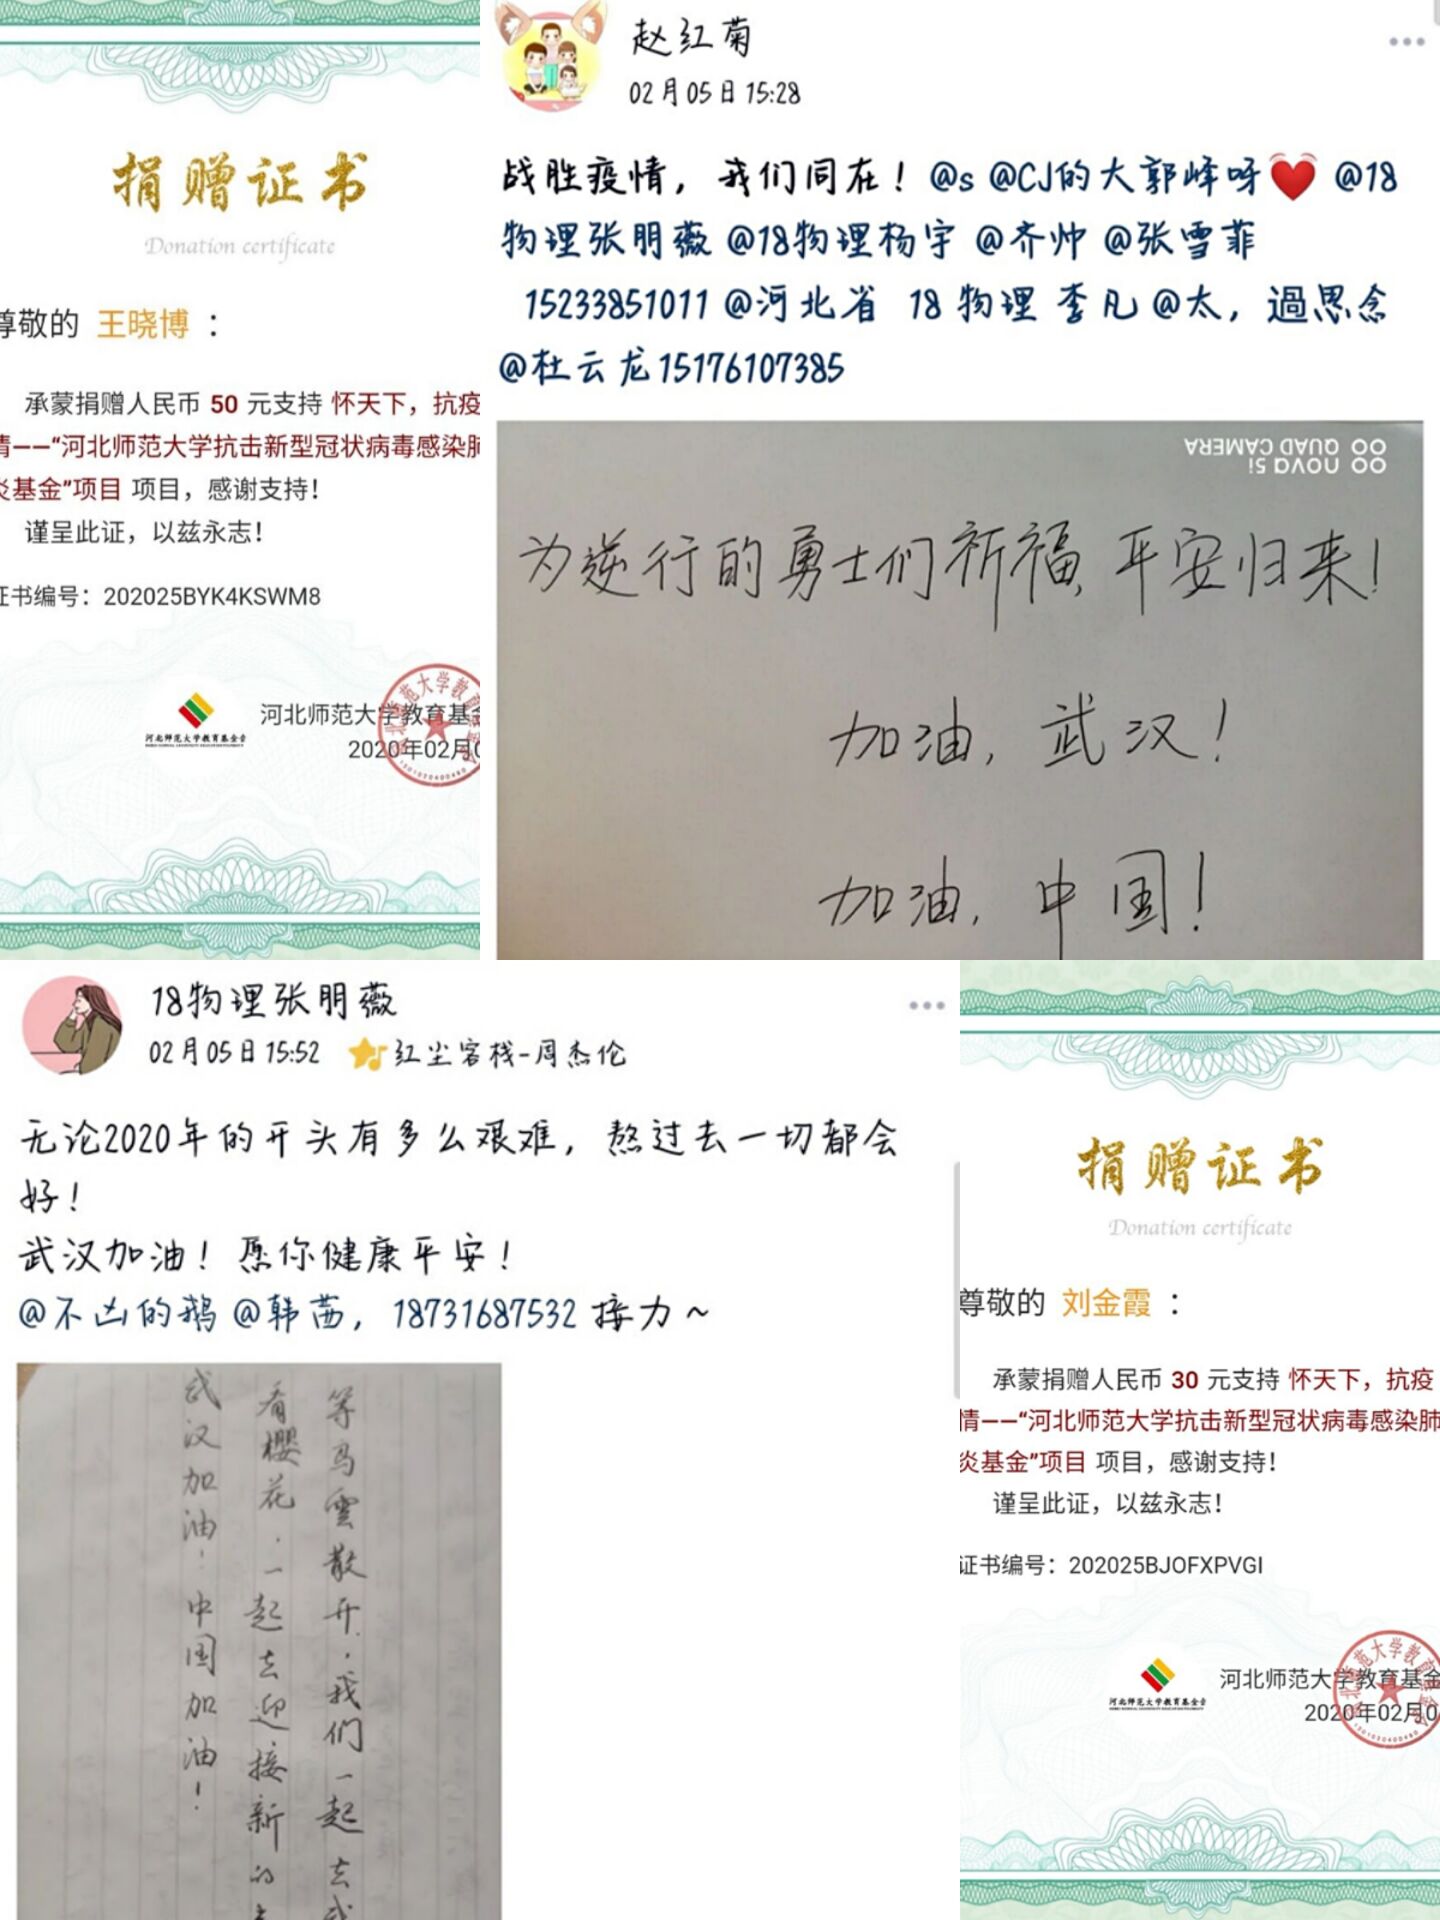 捐赠证书
Donation certificate
尊敬的 王晓博 ：
承蒙捐赠人民币 50 元支持 怀天下，抗疫
情——“河北师范大学抗击新型冠状病毒感染肺
炎基金”项目 项目，感谢支持！
谨呈此证，以兹永志！
证书编号：202025BYK4KSWM8
河北师范大学教育基金会
河北师范大学教育基金
2020年02月0
赵红菊
02月05日 15:28
战胜疫情，我们同在！@s @CJ的大郭峰呀 @18
物理张朋薇 @18物理杨宇 @齐帅 @张雪菲
15233851011 @河北省 18 物理 李凡 @太，過思念
@杜云龙15176107385
nova 5i
QUAD CAMERA
为逆行的勇士们祈福,平安归来！
加油，武汉！
加油，中国！
18物理张朋薇
02月05日 15:52 红尘客栈-周杰伦
无论2020年的开头有多么艰难，熬过去一切都会
好！
武汉加油！愿你健康平安！
@不凶的鹅 @韩茜，18731687532 接力~
等乌雲散开，我们一起去武
看櫻花，一起去迎接新的
武汉加油！中国加油！
捐赠证书
Donation certificate
尊敬的 刘金霞 ：
承蒙捐赠人民币 30 元支持 怀天下，抗疫
情——“河北师范大学抗击新型冠状病毒感染肺
炎基金”项目 项目，感谢支持！
谨呈此证，以兹永志！
证书编号：202025BJOFXPVGI
河北师范大学教育基金会
河北师范大学教育基金
2020年02月0